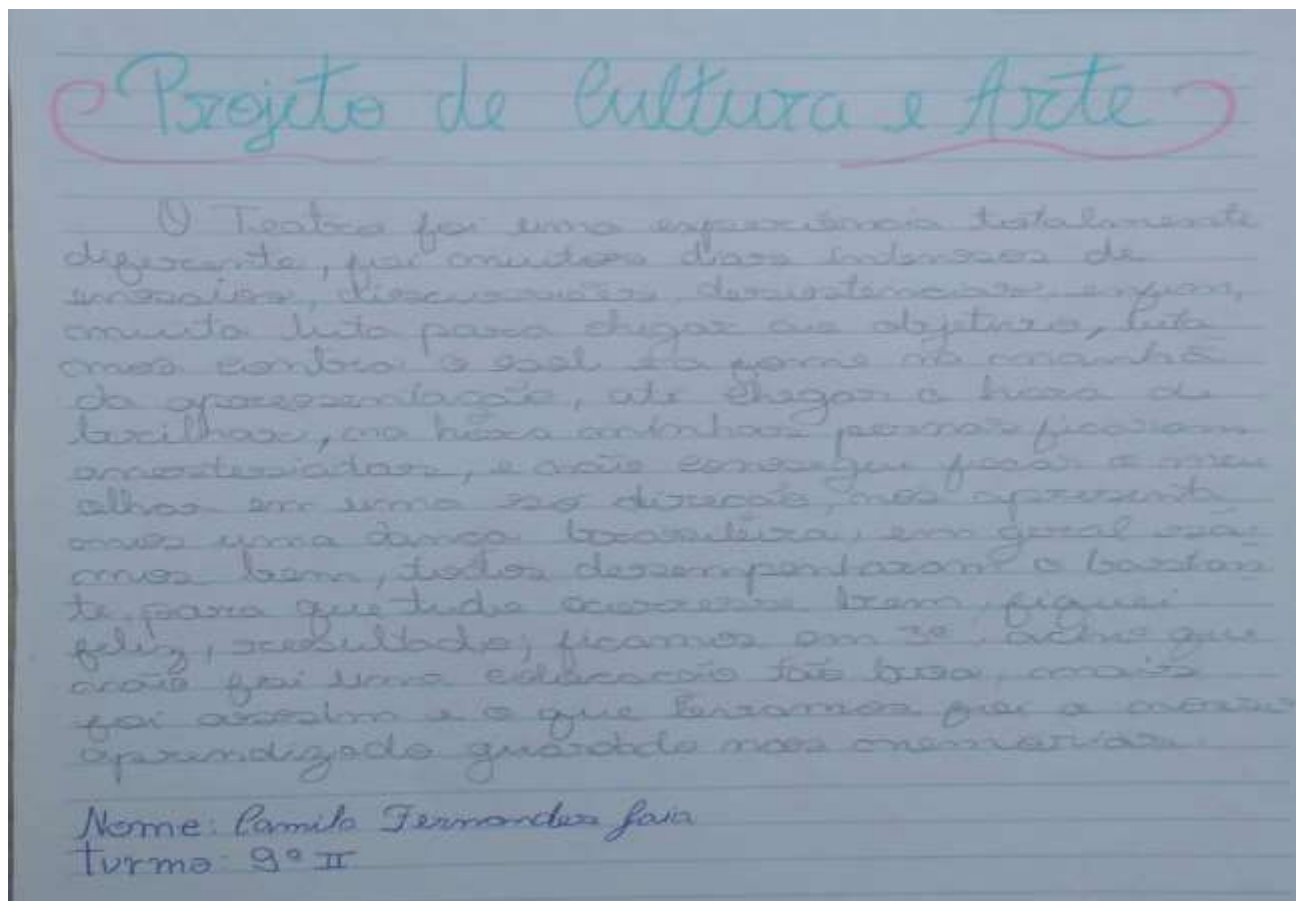 Projeto de Cultura e Arte
O Teatro foi uma experiência totalmente
diferente, foi muitos dias intensos de
emoções, discussões, desistencias, enfim,
muita luta para chegar ao objetivo, luta
mos contra o sol e a fome na manhã
da apresentação, até chegar a hora de
brilhar, na hora minhas pernas ficaram
anestesiadas, e não consegui focar o meu
olhar em uma só direção, nos apresenta
mos uma dança brasileira, em geral
mos bem, todos desempenharam o bastan
te para que tudo ocorresse bem, fiquei
feliz, resultado; ficamos em 3º, acho que
não foi uma colocação tão boa, mais
foi assim e o que levamos foi o nosso
aprendizado guardado nas memorias
Nome: Camila Fernandes
turma: 9º II